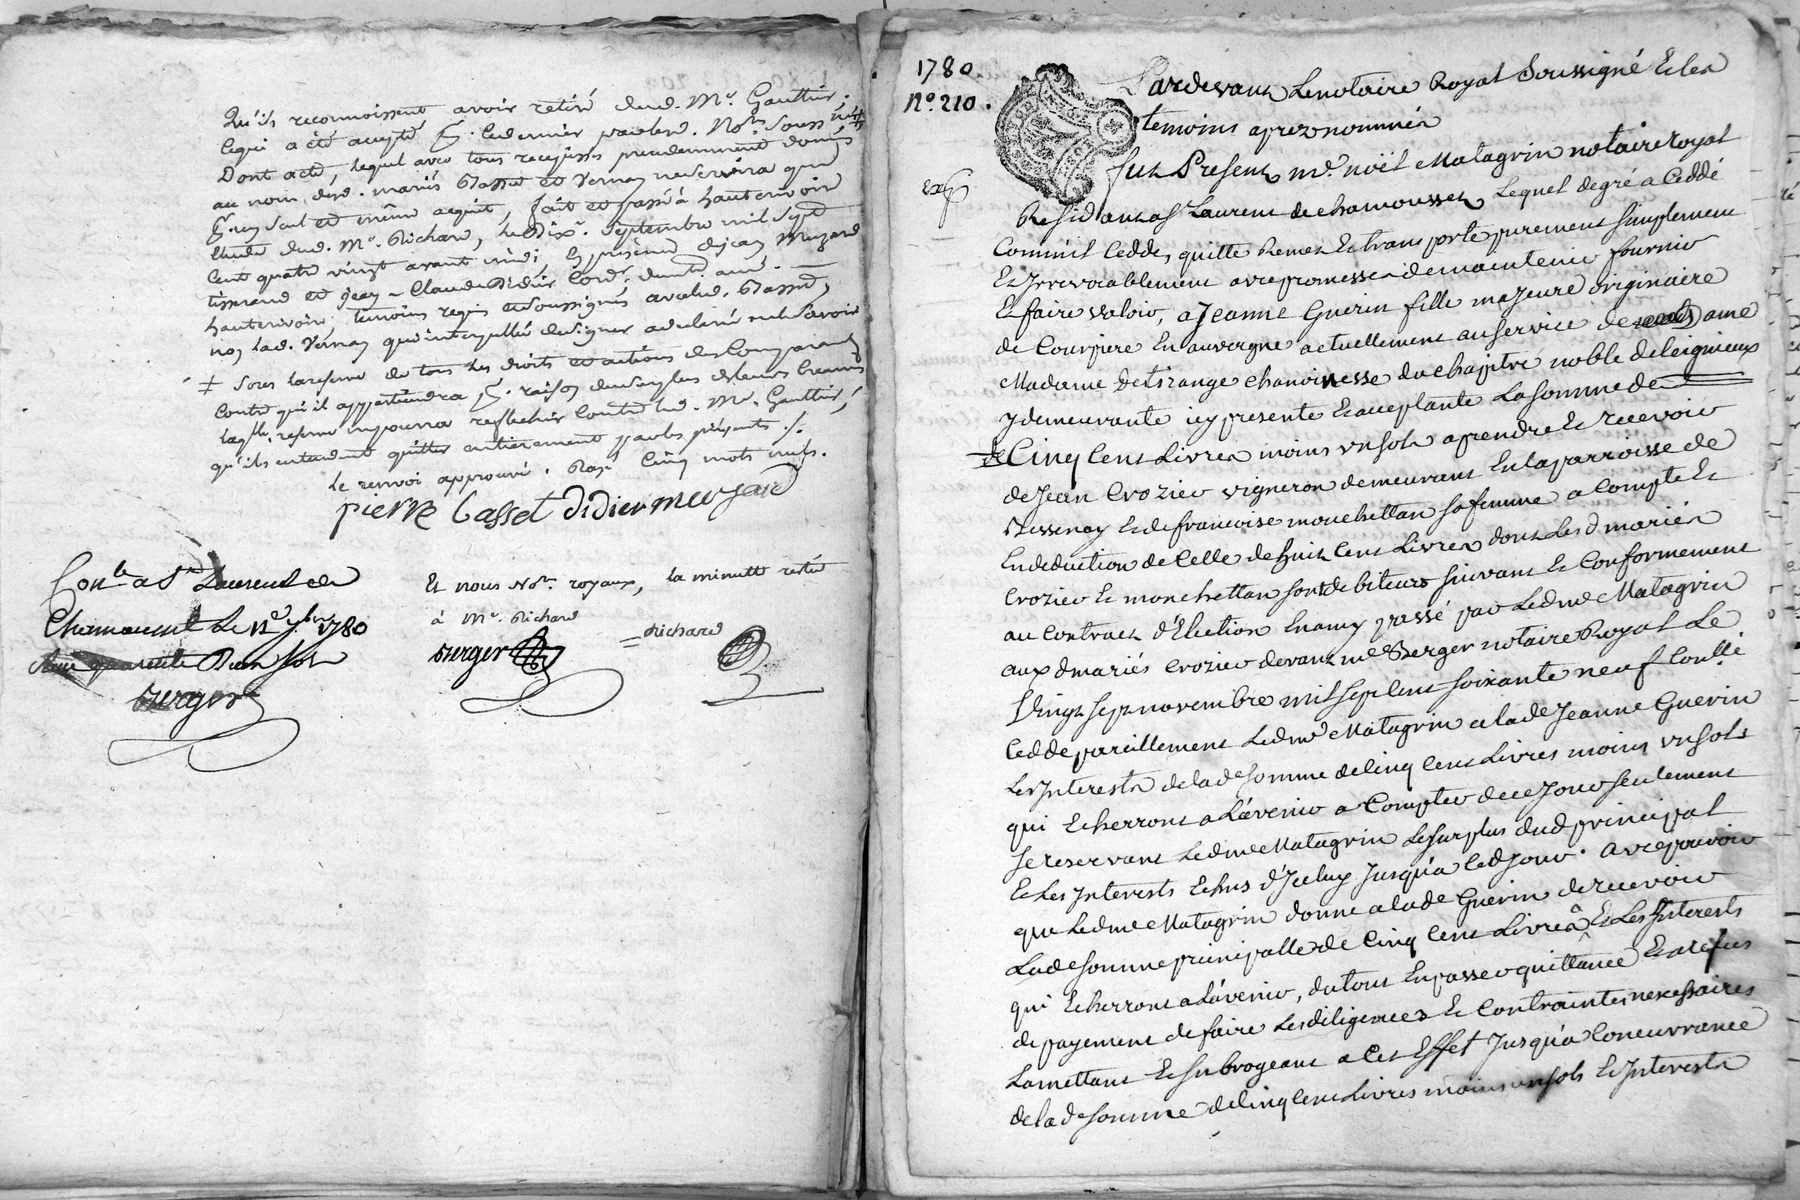 Qu'ils reconnoissent avoir retiré dud. Mr. Gauttier,
Ce qui a été accepté
Dont acte, lequel avec tous recepissés précédemment donnés
au nom desd. mariés Basset et Vernay ne servira que
seul et même acquit, fait et passé à hauterivoir
Etude dud. Mr. Richard, le Dix Septembre mil sept
Cent quatre vingt avant midi, En présence de jean Muzard
tisserand et jean Claude Didier Cord.
hauterivoir, témoins requis et soussignés avec led. Basset,
non lad. Vernay qui interpellée de signer a declaré ne le savoir
‡ Sous la reserve de tous les droits et actions des Comparants
Contre qui il appartiendra raison du surplus de leurs Creances
laqlle. reserve ne pourra reflechir Contre led. Mr. Gauttier,
qu'ils entendent quitter entierement par les présents ./.
le renvoi approuvé. Rayé Cinq mots nuls.
pierre Basset didier muzard
Conlé a St. Laurent de
Chamousset Le 12 7bre 1780
quarante
Berger
Et nous Nores. royaux, la minutte restée
à Mr. Richard
Berger
Richard
1780.
No. 210.
Pardevant Le notaire Royal Soussigné Et les
temoins aprez nommés
fut Present Me. noël Matagrin notaire royal
Residant a St Laurent de chamousset, Lequel de gré a Ceddé
Comm'il Cedde, quitte Remet Et transporte purement simplement
Et Irrevocablement avec promesse de maintenir fournir
Et faire valoir, a Jeanne Guerin fille majeure originaire
de Courpiere En auvergne actuellement au service de dame
Madame De Lirange chanoinesse du chapitre noble de Leignieux
y demeurante icy presente Et acceptante La somme de
de Cinq Cent Livres moins un sols a prendre Et recevoir
de Jean Crozier vigneron demeurant En la parroisse de
Bessenay Et de francoise mouchettan sa femme a Compte Et
En deduction de Celle de huit Cent Livres dont Les d mariés
Crozier Et mouchettan sont debiteurs suivant Et Conformement
au Contract d'Election En amy passé par Led me Matagrin
aux d mariés Crozier devant me Berger notaire Royal Le
Vingt sept novembre mil sept Cent soixante neuf Conllé
Cedde pareillement Led me Matagrin a lade Jeanne Guerin
Les Interests de lade somme de Cinq Cent Livres moins un sols
qui Echerront a L'avenir a Compter de ce Jour seulement
se reservant Led me Matagrin Le surplus dud principal
Et Les Interests Echus d'Iceluy Jusqu'a Ced Jour. avec pouvoir
que Led me Matagrin donne a lade Guerin de recevoir
Lade somme principalle de Cinq Cent Livres Et Les Interests
qui Echerront a L'avenir, du tout En passer quittance Et a refus
de payement de faire Les diligences Et Contraintes necessaires
La mettant Et subrogeant a Cet Effet Jusqu'a Concurrance
de lade somme de Cinq Cent Livres moins un sols Et Interests